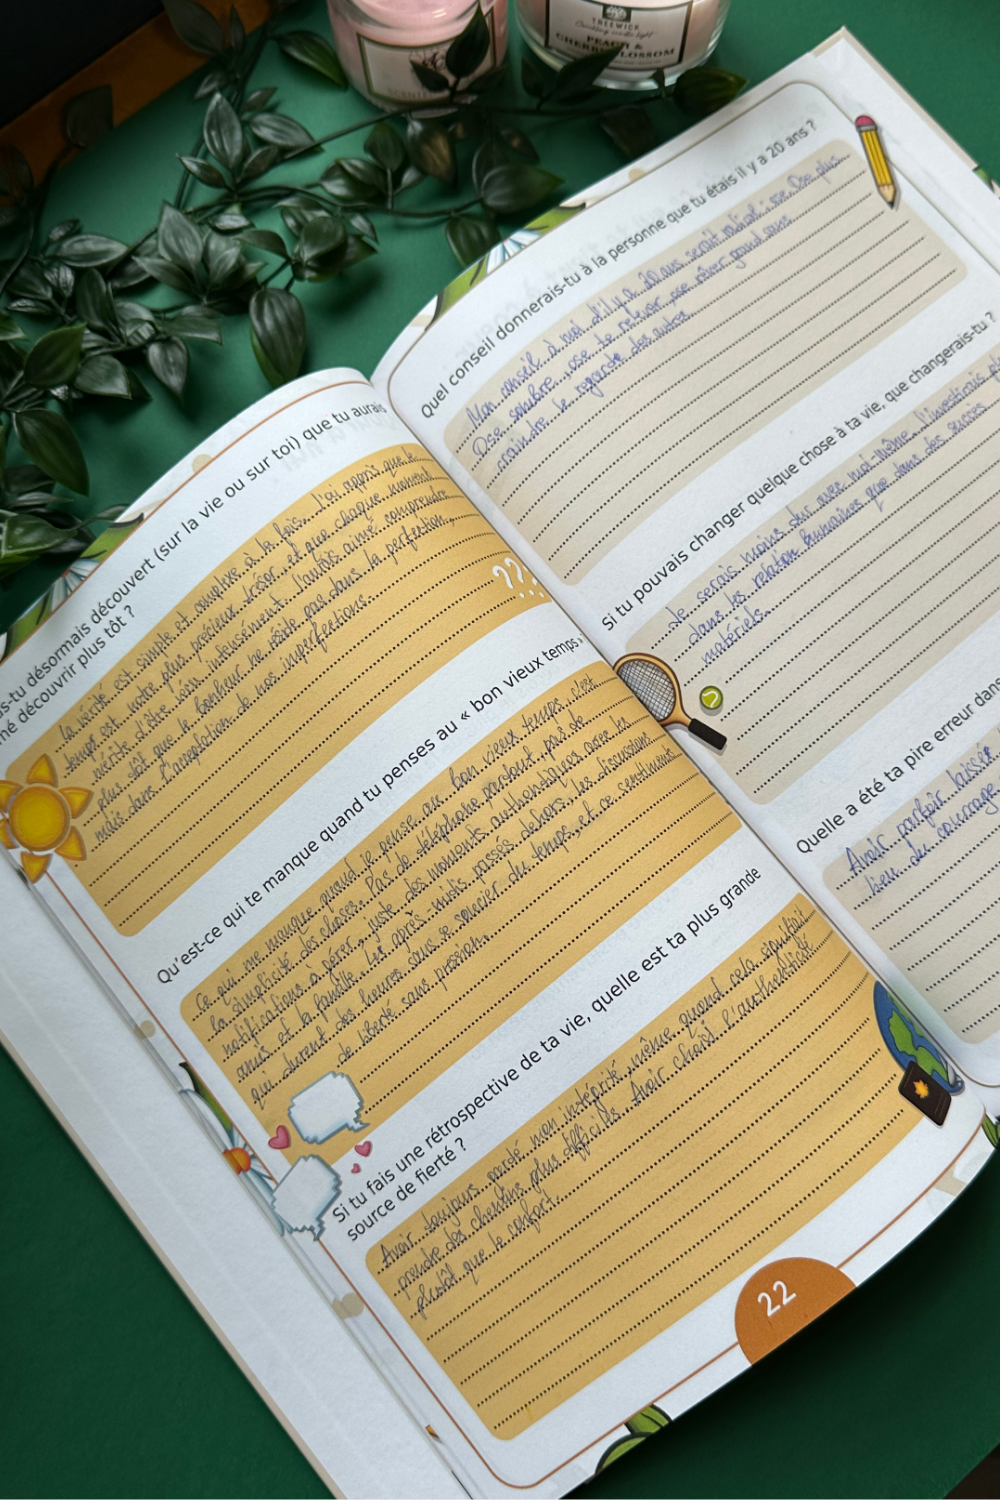 TREEWICK
PEACH &
CHERRY BLOSSOM
s-tu désormais découvert (sur la vie ou sur toi) que tu aurais
mé découvrir plus tôt ?
La vérité est simple et complexe à la fois. J'ai appris que le
temps est notre plus précieux trésor et que chaque moment
mérite d'être vécu intensément. J'aurais aimé comprendre
plus tôt que le bonheur ne réside pas dans la perfection,
mais dans l'acceptation de nos imperfections.
??
Qu'est-ce qui te manque quand tu penses au « bon vieux temps »
Ce qui me manque quand je pense au bon vieux temps, c'est
la simplicité des choses. Pas de téléphone partout, pas de
notifications à gérer, juste des moments authentiques avec les
amis et la famille. Les après-midis passés dehors, les discussions
qui durent des heures sans se soucier du temps, et ce sentiment
de liberté sans pression.
Si tu fais une rétrospective de ta vie, quelle est ta plus grande
source de fierté ?
Avoir toujours gardé mon intégrité, même quand cela signifiait
prendre des chemins plus difficiles. Avoir choisi l'authenticité
plutôt que le confort.
22
Quel conseil donnerais-tu à la personne que tu étais il y a 20 ans ?
Mon conseil à moi d'il y a 20 ans serait radical : ose. Ose plus.
Ose sombre, ose te relever, ose rêver grand sans
craindre le regard des autres.
Si tu pouvais changer quelque chose à ta vie, que changerais-tu ?
Je serais moins dur avec moi-même. J'investirais
dans les relation humaines que dans des succès
matériels.
Quelle a été ta pire erreur dans
Avoir parfois laissée
lieu du courage